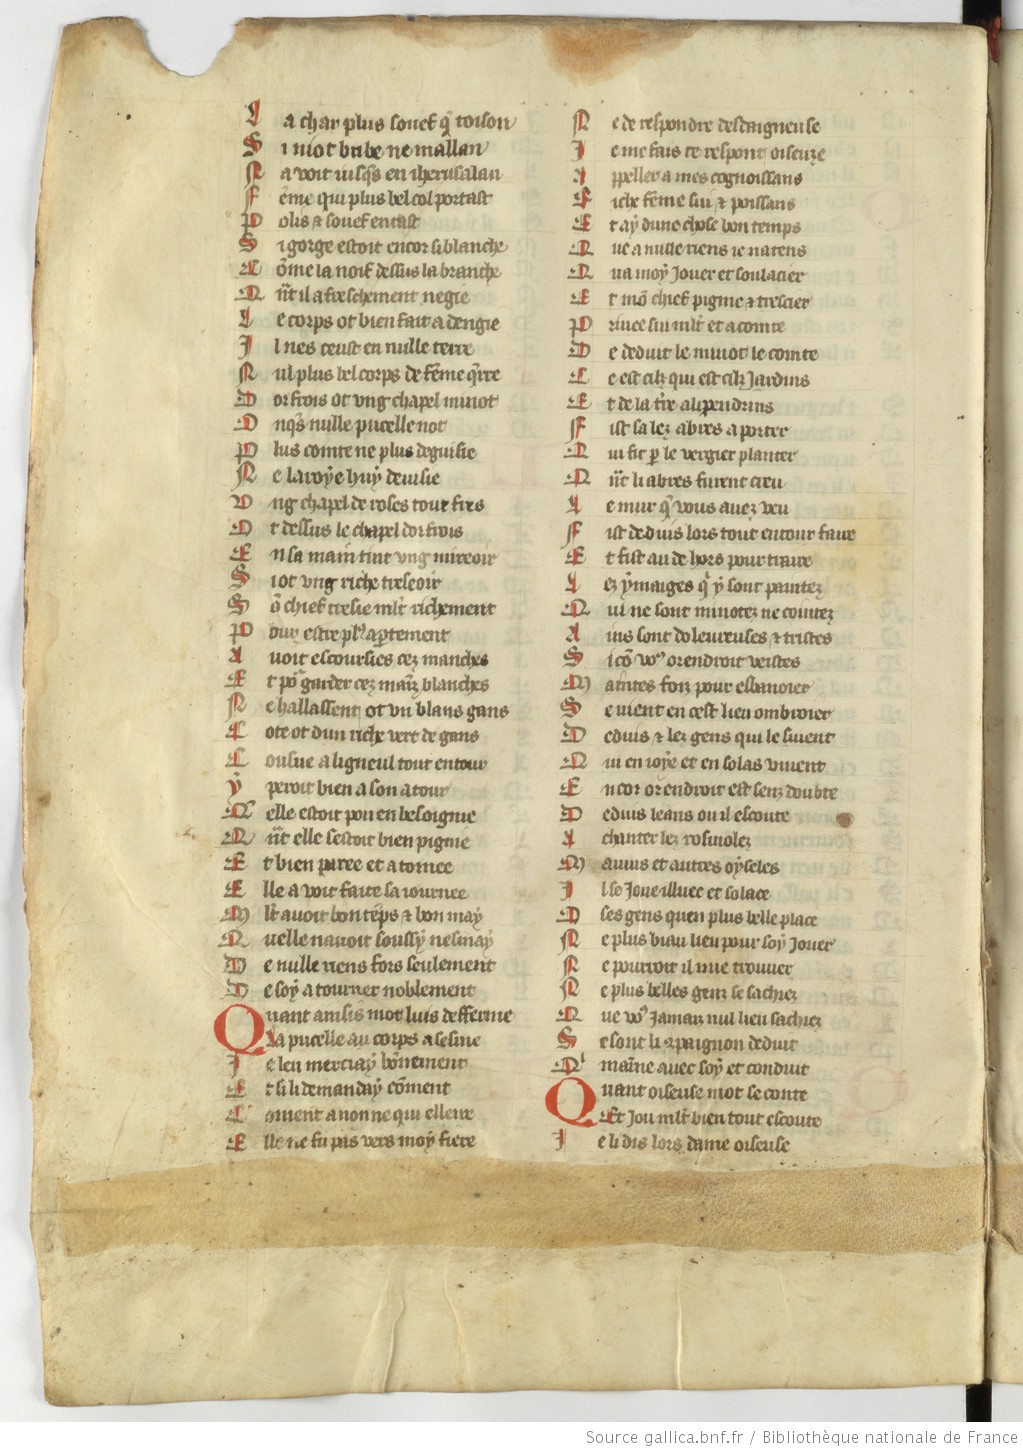 L a char plus souef q̃ toison
S i niot bube ne mallan
N a voit iusq̃s en iherusalan
F ẽme qui plus bel col portast
P olis & souef en tast
S i gorge estoit encor si blanche
C õme la noif dessus la branche
Q ñt il a freschement negie
L e corps ot bien fait a dengie
I l nes teust en nulle terre
N ul plus bel corps de fẽme q̃rre
D orfrois ot vng chapel miuot
O nq̃s nulle pucelle not
P lus comte ne plus deguisie
N e laroye huy deuisie
V ng chapel de roses tout fres
O t dessus le chapel dorfrois
E n sa main tint vng mireoir
S i ot vng riche treseoir
S õ chief tresie mlt richement
P our estre pl9 aptement
A uoit escoursies cez manches
E t po᷑ garder cez maĩz blanches
N e hallassent ot vn blans gans
C ote ot dun riche vert de gans
C ousue a ligneul tout entour
Y peroit bien a son atour
Q elle estoit pou en besoignie
Q ñt elle sestoit bien pignie
E t bien paree et a tornee
E lle a voit faite sa iournee
M lt auoit bon tẽps & bon may
Q uelle nauoit soussy nesmay
D e nulle riens fors seulement
D e soy a tourner noblement
Q uant ainsis mot luis defferme
La pucelle au corps a sesme
I e len merciay bõnement
E t si li demanday cõment
C oment a non ne qui ellere
E lle ne fu pas vers moy fiere
N e de respondre desdaigneuse
I e me fais ce respont oiseuze
A ppeller a mes cognoissans
R iche fẽme sui & poissans
E t ay dune chose bon temps
Q ue a nulle riens ie natens
Q ua moy Jouer et soulacier
E t mõ chief pigme & trescier
P riuee sui mlt et acomte
D e deduit le miuot le comte
C e est cilz qui est cilz Jardins
E t de la tr̃e alipendrins
F ist sa lez abres aporter
Q ui fit p le vergier planter
Q ñt li abres furent creu
L e mur q̃ vous auez veu
F ist deduis lors tout entour faire
E t fist au de hors pourtraire
L ez ymaiges q̃ y sont paintez
Q ui ne sont miuotez ne cointez
A ins sont doleureuses & tristes
S i cõ vo9 orendroit veistes
M aintes foiz pour esbanoier
S e vient en cest lieu ombroier
D eduis & lez gens qui le siuent
Q ui en ioye et en solas viuent
E ncor orendroit est senz doubte
D eduis leans ou il escoute
A chanter lez rosinolez
M auuis et autres oyseles
I l se Joue illuec et solace
O ses gens quen plus belle place
N e plus biau lieu pour soy Jouer
N e pourroit il mie trouuer
N e plus belles genz se sachiez
Q ue vo9 Jamaiz nul lieu sachiez
S e sont li 9paignon deduit
Q maĩne auec soy et conduit
Q uant oiseuse mot se conte
Et Jou mlt bien tout escoute
I e li dis lors dame oiseuse
Source gallica.bnf.fr / Bibliothèque nationale de France